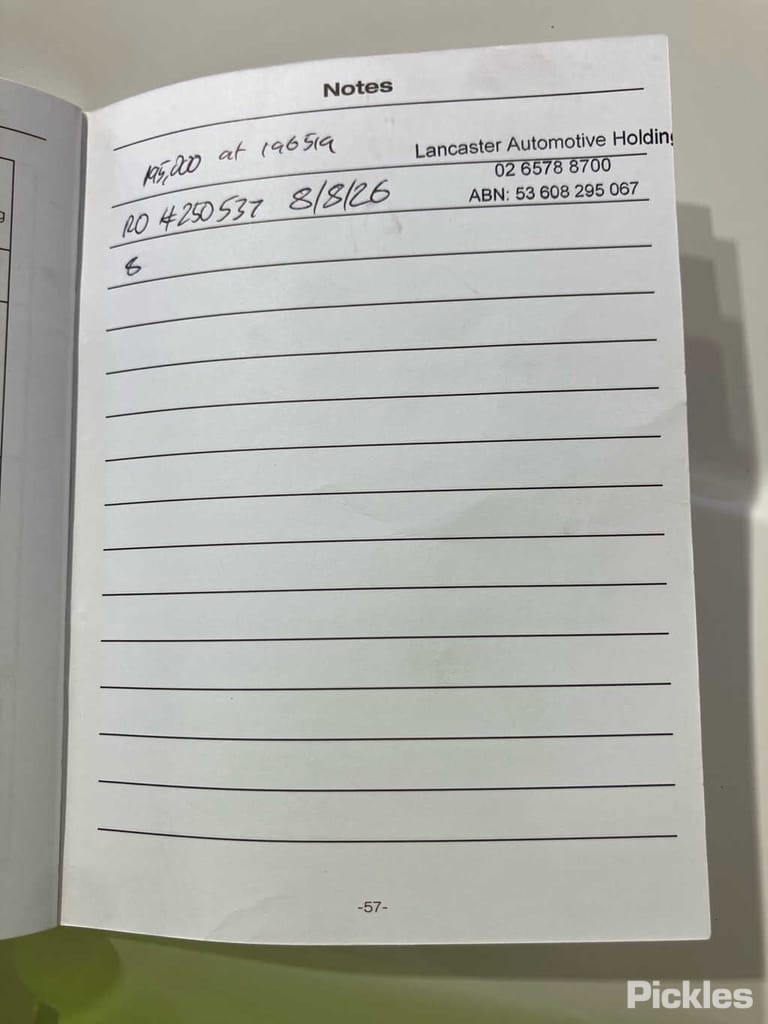 Notes
195,000 at 196519
Lancaster Automotive Holding
02 6578 8700
RO #250537 8/8/26
ABN: 53 608 295 067
8
-57-
Pickles